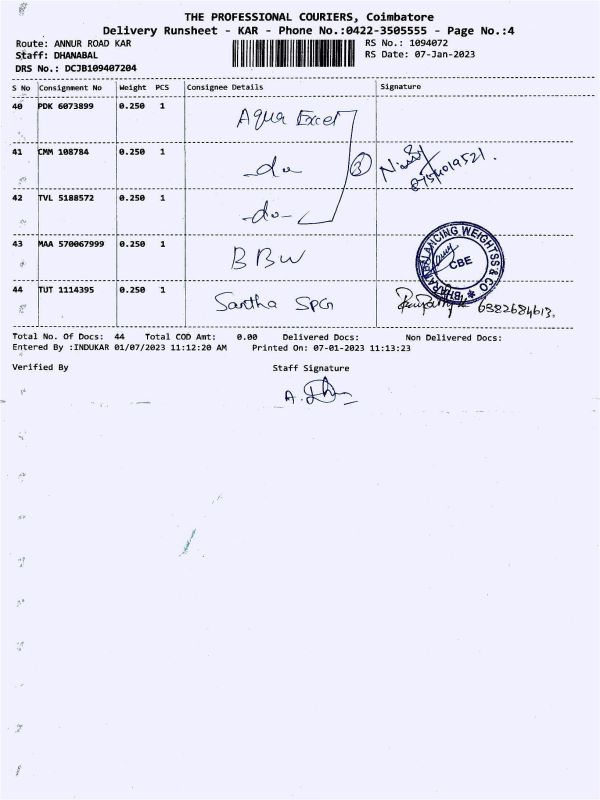 THE PROFESSIONAL COURIERS, Coimbatore
Delivery Runsheet - KAR - Phone No.:0422-3505555 - Page No.:4
Route: ANNUR ROAD KAR
RS No.: 1094072
Staff: DHANABAL
RS Date: 07-Jan-2023
DRS No.: DCJB109407204
S No Consignment No Weight PCS Consignee Details Signature
40 PDK 6073899 0.250 1 Aqua Excel
41 CMM 108784 0.250 1 -do- 3
42 TVL 5188572 0.250 1 -do-
43 MAA 570067999 0.250 1 BBW
BALANCING WEIGHTSS & CO
CBE
44 TUT 1114395 0.250 1 Santha SPG 6382684613.
Total No. Of Docs: 44 Total COD Amt: 0.00 Delivered Docs: Non Delivered Docs:
Entered By :INDUKAR 01/07/2023 11:12:20 AM Printed On: 07-01-2023 11:13:23
Verified By Staff Signature